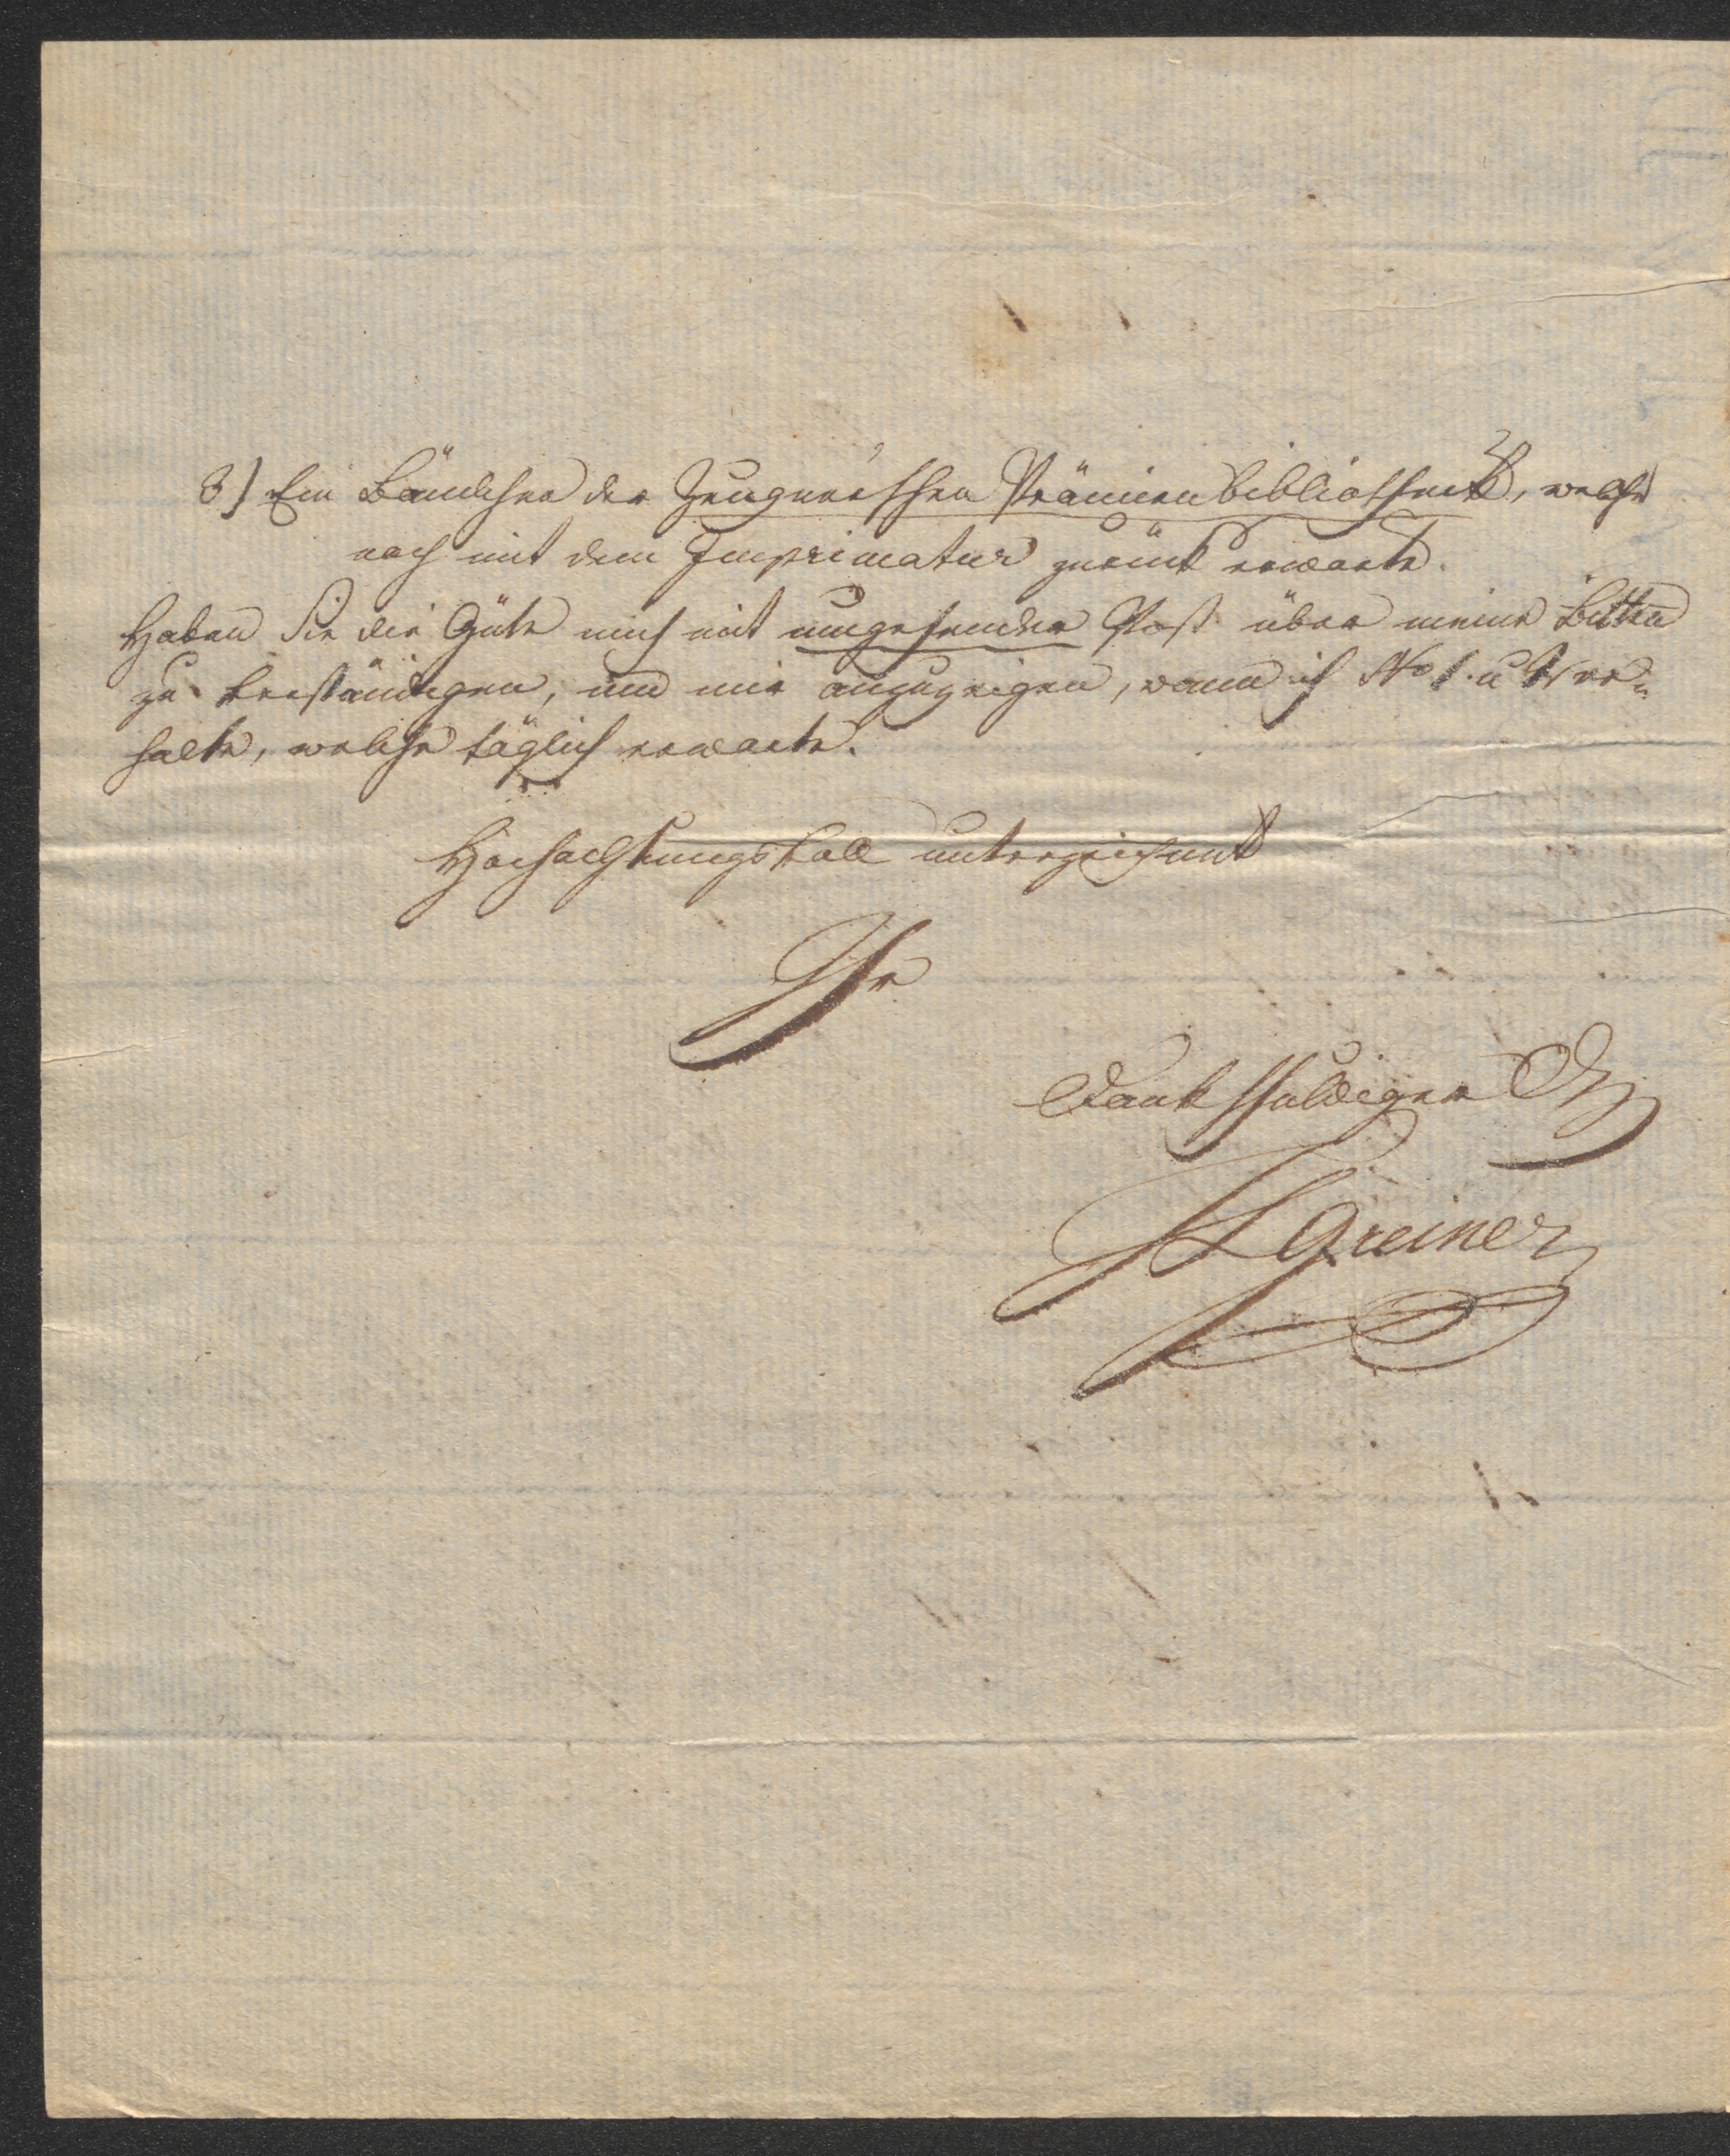 3) Ein Bändchen der Zeugner'schen Prämienbibliotheck, welche
noch mit dem Imprimatur zurück erwarte.
Haben Sie die Güte mich mit umgehender Post über meine Bitten
zu verständigen, und mir anzuzeigen, wann ich No 1. u er=
halte, welche täglich erwarte.
Hochachtungsvoll unterzeichnet
Ihr
Dankschuldiger
Greiner